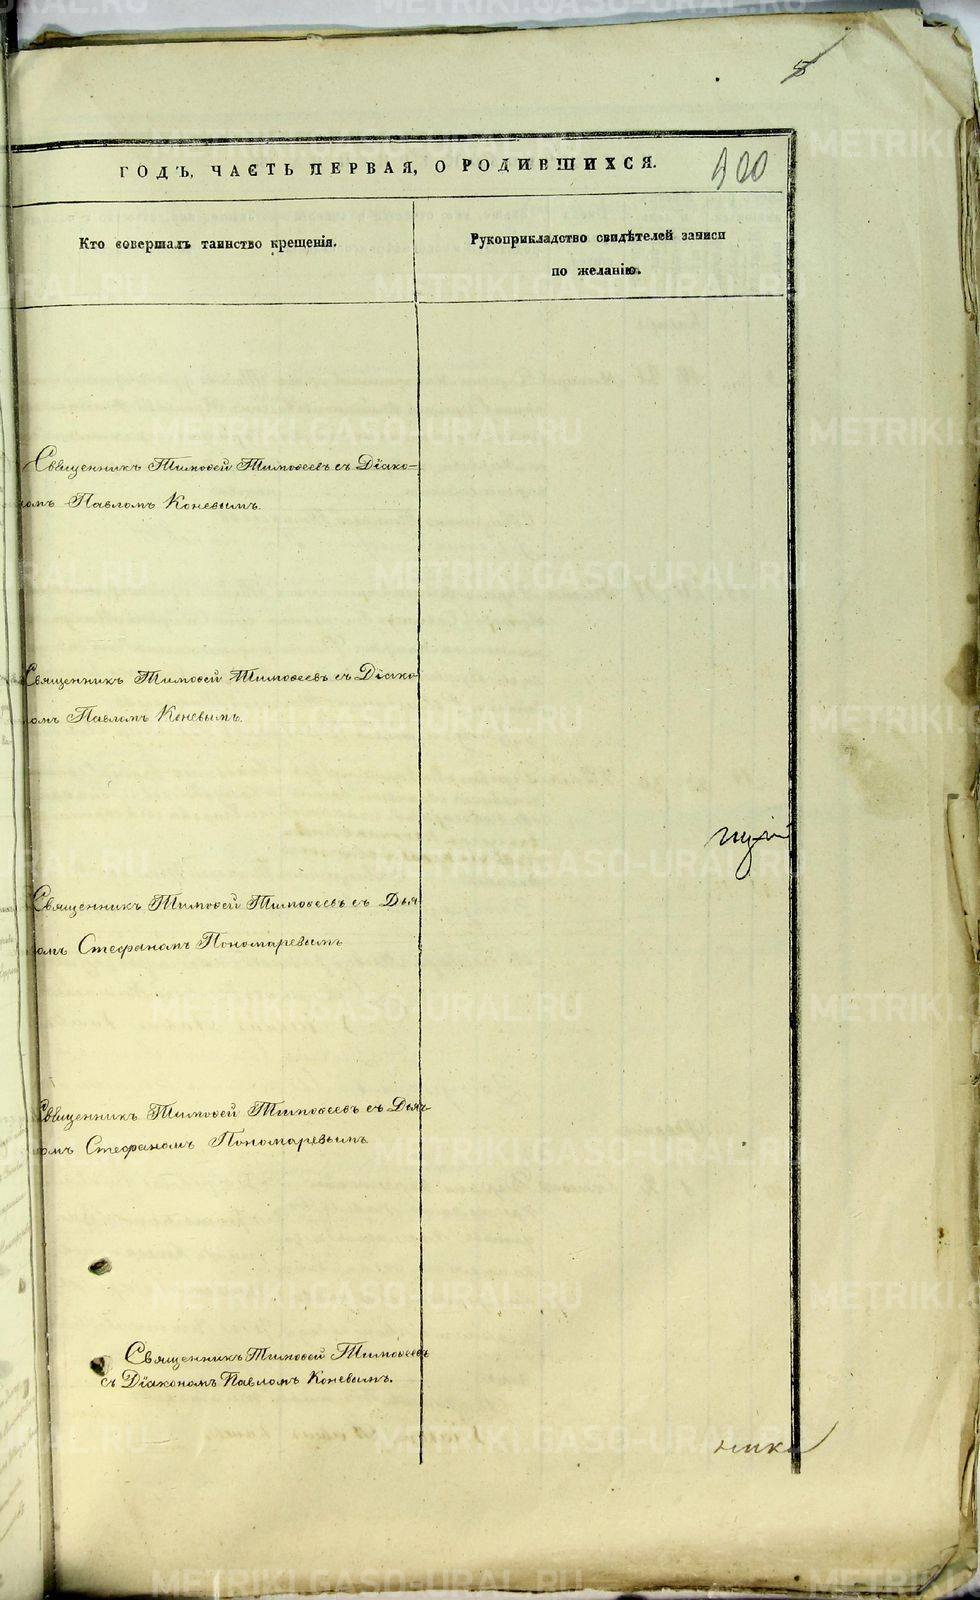 5
ГОДЪ, ЧАСТЬ ПЕРВАЯ, О РОДИВШИХСЯ.
400
Кто совершалъ таинство крещенія.
Рукоприкладство свидѣтелей записи
по желанію.
Священникъ Тимоѳей Тимоѳеевъ съ Діако-
номъ Павломъ Коневымъ.
Священникъ Тимоѳей Тимоѳеевъ съ Діако
номъ Павломъ Коневымъ.
Священникъ Тимоѳей Тимоѳеевъ съ Дья
омъ Стефаномъ Пономаревымъ
Священникъ Тимоѳей Тимоѳеевъ съ Дьяч
комъ Стефаномъ Пономаревымъ
Священникъ Тимоѳей Тимоѳеевъ
съ Діакономъ Павломъ Коневымъ.
ника
METRIKI.GASO-URAL.RU